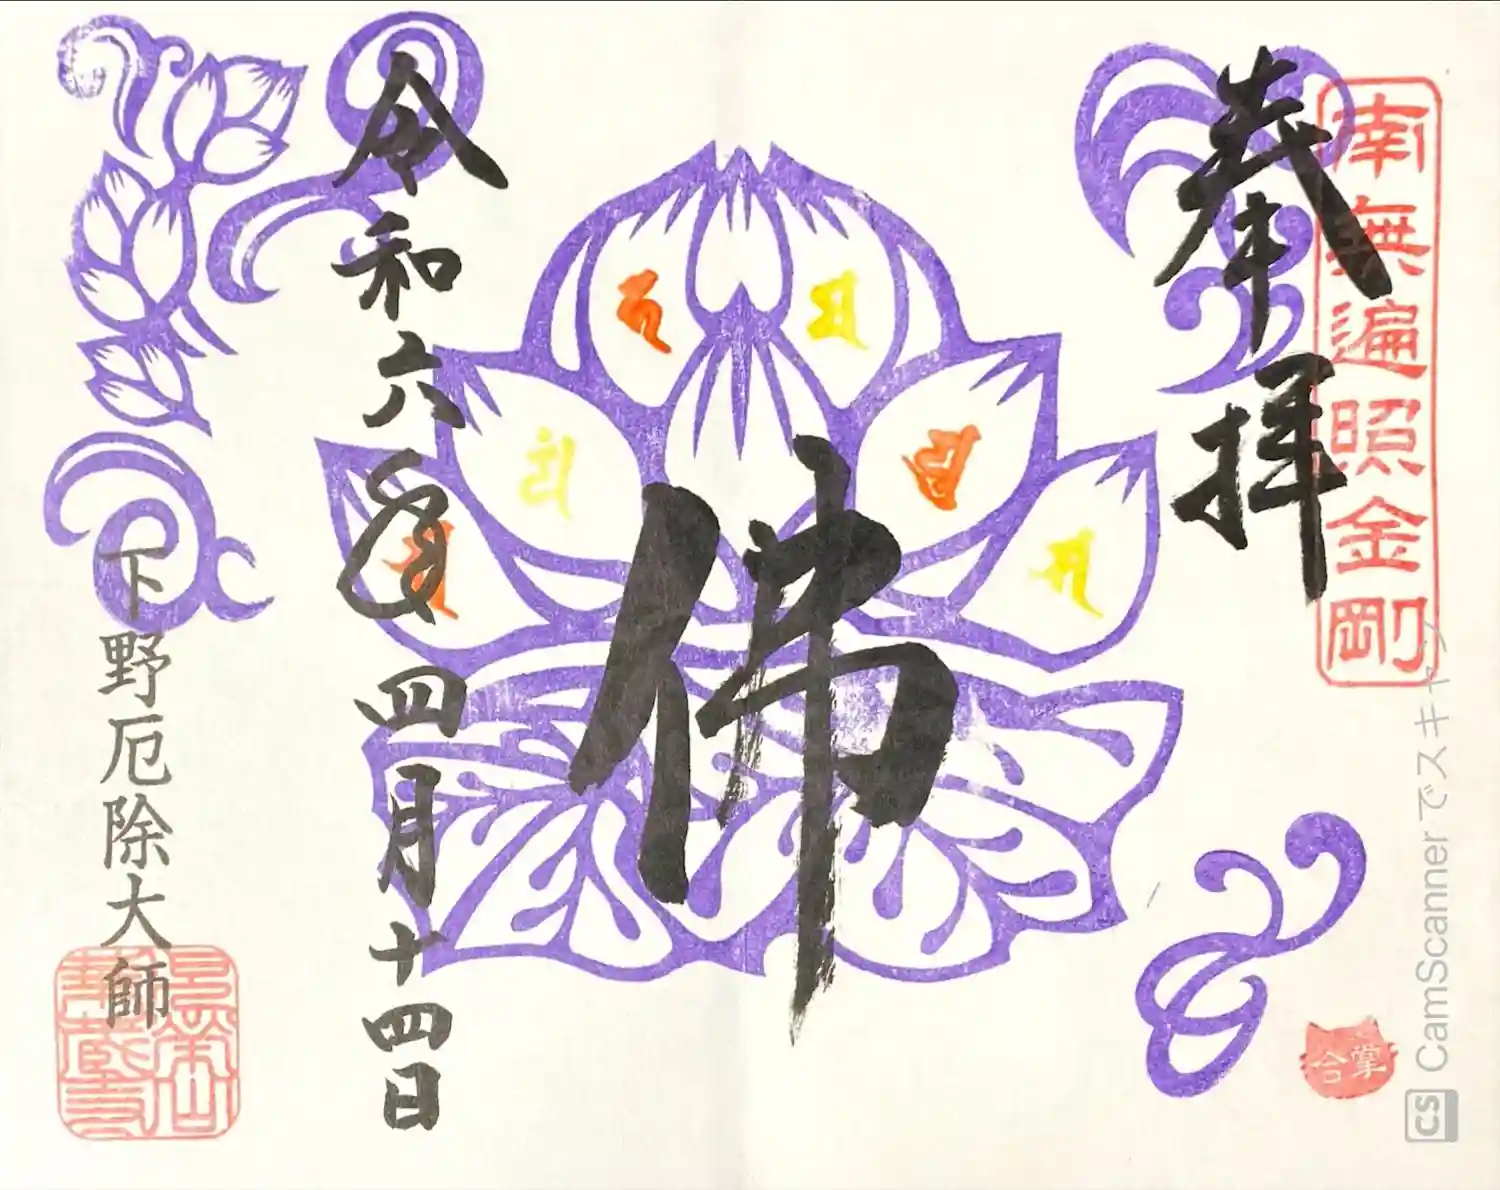 南無遍照金剛
奉拝
佛
令和六年四月十四日
下野厄除大師
合掌
CamScannerでスキャン
CS